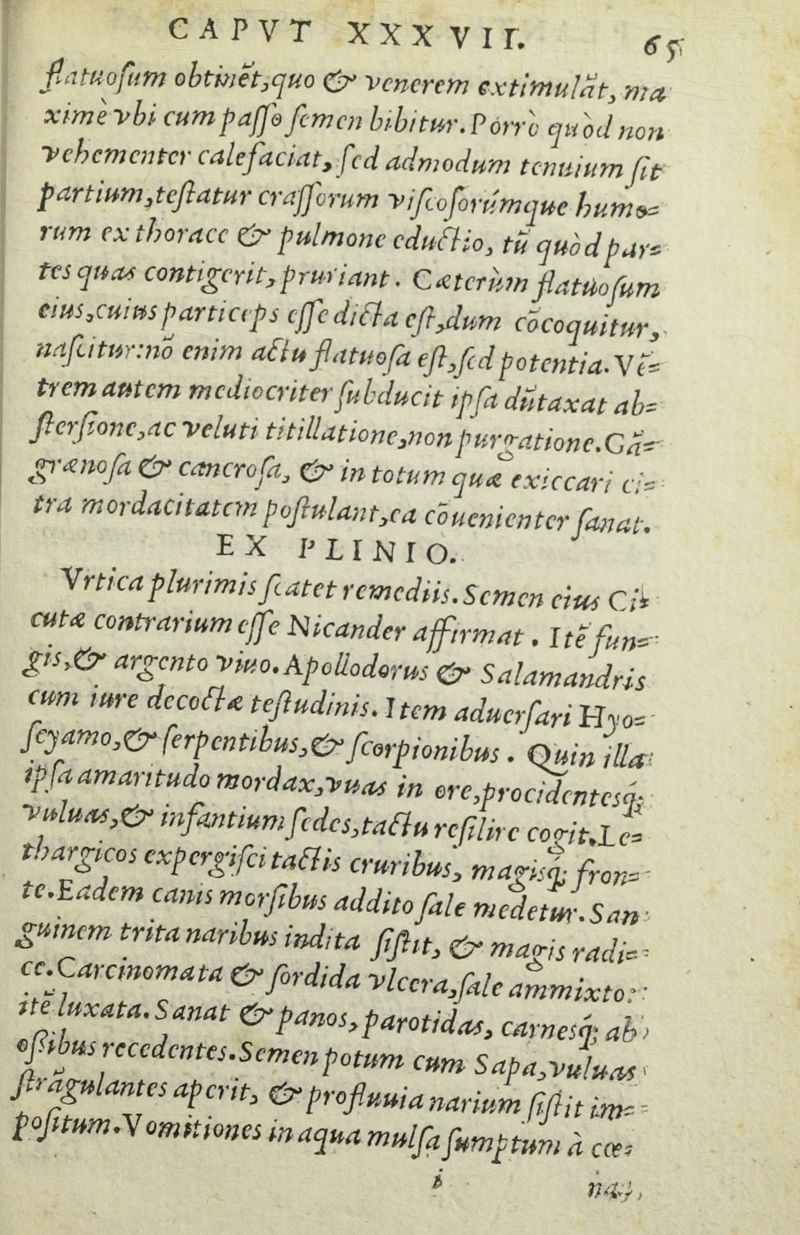 CAPVT XXXVII. 65
flatuoſum obtinēt, quo & venerem extimulāt, ma
ximè vbi cum paſſo ſemen bibitur. Porrò quòd non
vehementer calefaciat, ſed admodum tenuium ſit
partium, teſtatur craſſorum viſcoſorúmque humo=
rum ex thorace & pulmone eductio, tū quòd par=
tes quas contigerit, pruriant. Cæterùm flatuoſum
eius, cuius particeps eſſe dicta eſt, dum cōcoquitur,
naſcitur: nō enim actu flatuoſa eſt, ſed potentia. Vē=
trem autem mediocriter ſubducit ipſa dūtaxat ab=
ſterſione, ac veluti titillatione, non purgatione. Gā=
grænoſa & cancroſa, & in totum quæ exiccari ci=
tra mordacitatem poſtulant, ea cōuenienter ſanat.
EX PLINIO.
Vrtica plurimis ſcatet remediis. Semen eius Ci=
cutæ contrarium eſſe Nicander affirmat. Itē fun=
gis, & argento viuo. Apollodorus & Salamandris
cum iure decoctæ teſtudinis. Item aduerſari Hyo=
ſcyamo, & ſerpentibus, & ſcorpionibus. Quin illa
ipſa amaritudo mordax, vuas in ore, procidētesq;
vuluas, & infantium ſedes, tactu reſilire cogit. Le=
thargicos expergiſci tactis cruribus, magisq; fron=
te. Eadem canis morſibus addito ſale medetur. San
guinem trita naribus indita ſiſtit, & magis radi=
ce. Carcinomata & ſordida vlcera, ſale ammixto:
itē luxata. Sanat & panos, parotidas, carnesq; ab
oſſibus recedentes. Semen potum cum Sapa, vuluas
ſtrāgulantes aperit, & profluuia narium ſiſtit im=
poſitum. Vomitiones in aqua mulſa ſumptum à cœ=
i na,